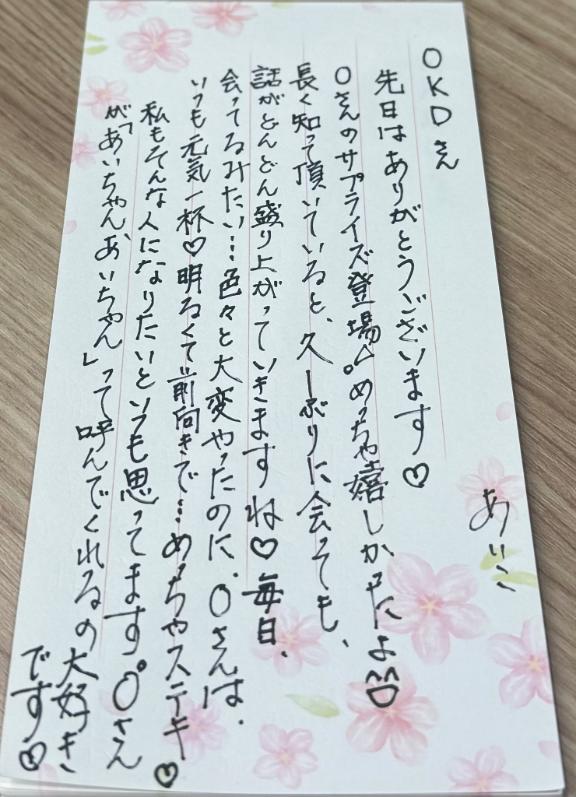 OKDさん
先日はありがとうございます♡
Oさんのサプライズ登場♪めっちゃ嬉しかったよ
長く知って頂いていると、久しぶりに会っても、
話がどんどん盛り上がっていきますね♡毎日、
会ってるみたい…色々と大変やったのに、Oさんは、
いつも元気一杯♡明るくて前向きで…めっちゃステキ♡
私もそんな人になりたいといつも思ってます。Oさん
が「あいちゃん、あいちゃん」って呼んでくれるの大好き
です♡
あいこ